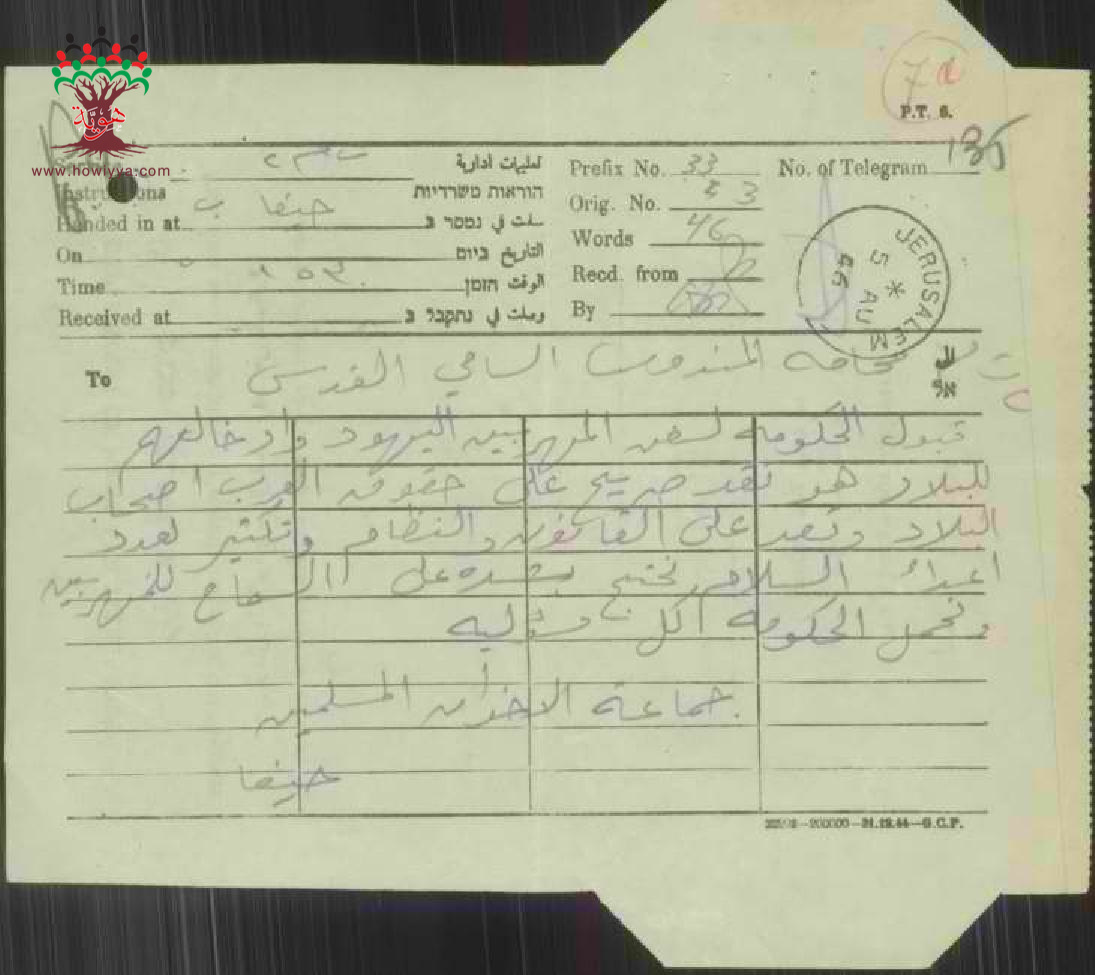 هوية
www.howlyya.com
7d
P.T. 6.
135
Instructions تعليمات ادارية
הוראות משרדיות
Prefix No. 33 No. of Telegram
Orig. No. 53
Handed in at حيفا سلمت في נמסר ב
Words 46
On التاريخ ביום
Recd. from
Time الوقت הזמן
By
Received at وصلت في נתקבל ב
JERUSALEM
5 AU 46
To فخامة المندوب السامي القدس الى אל
قبول الحكومه لسفن المهربين اليهود وادخالهم
للبلاد هو تعد صريح على حقوق العرب اصحاب
البلاد وتعد على القانون والنظام وتكثير لعدد
اعداء السلام نحتج بشده على السماح للمهربين
ونحمل الحكومة كل مسؤليه
جماعة الاخوان المسلمين
حيفا
200000—21.12.44—G.C.P.